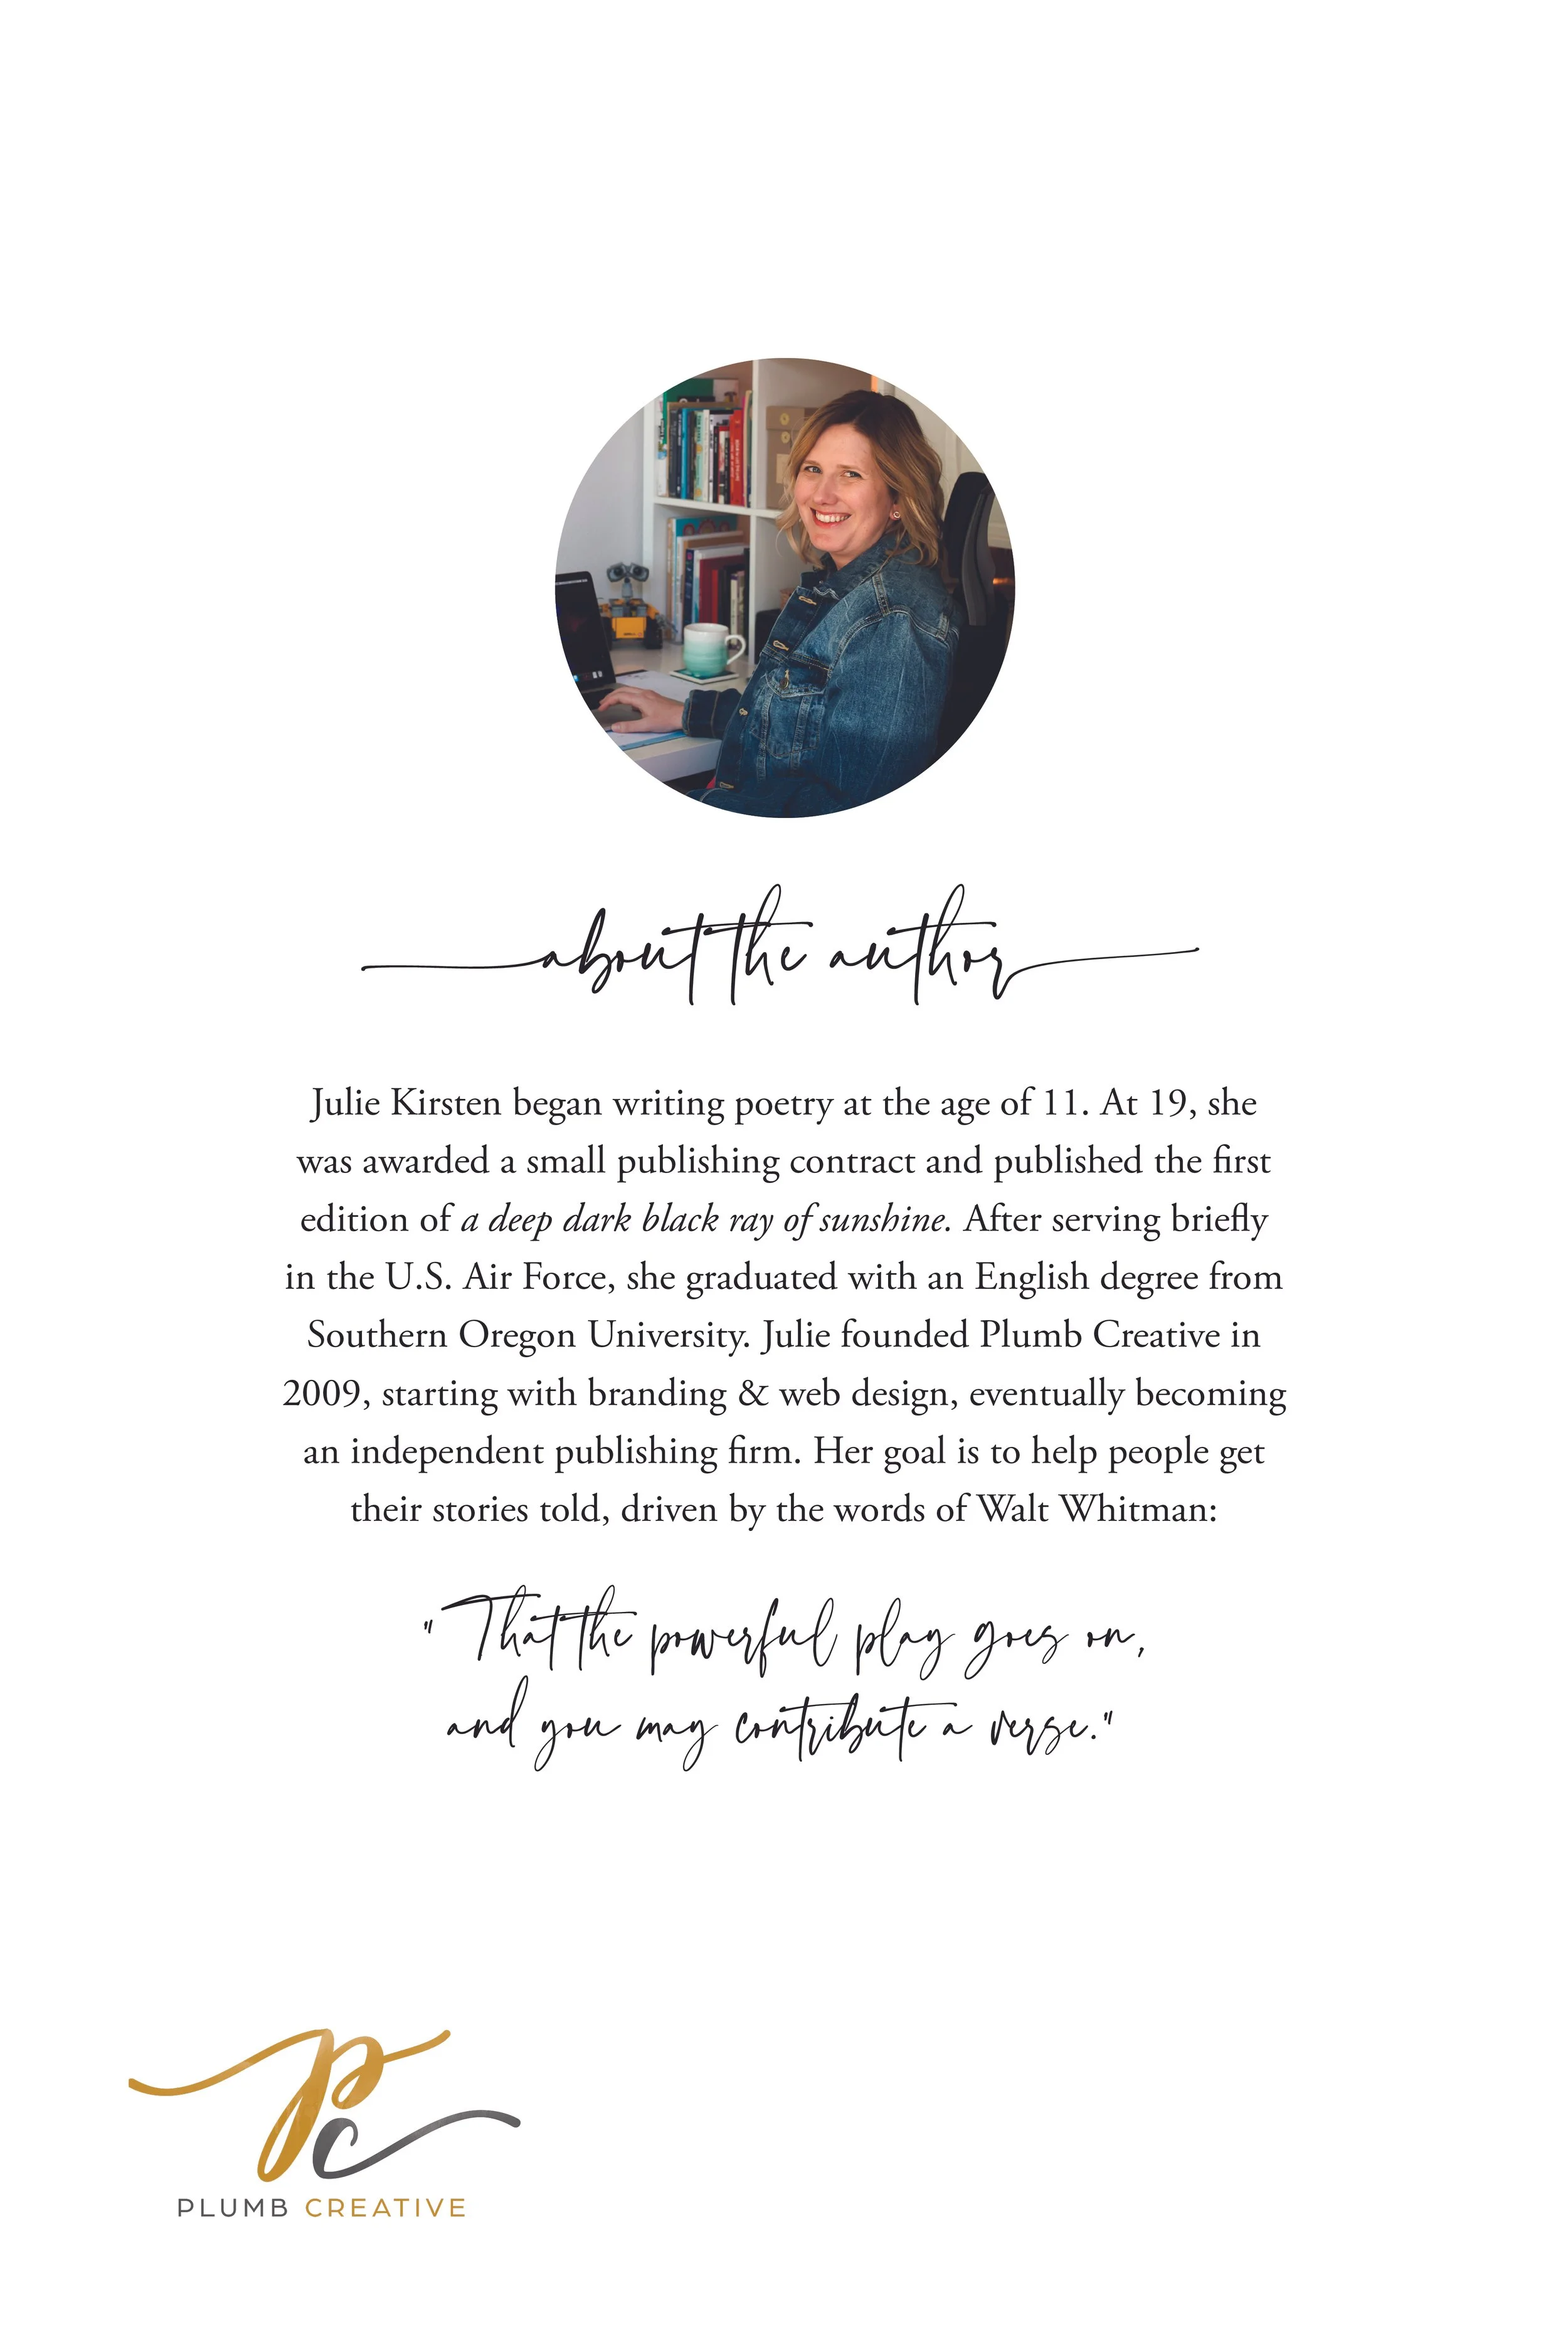 about the author
Julie Kirsten began writing poetry at the age of 11. At 19, she
was awarded a small publishing contract and published the first
edition of a deep dark black ray of sunshine. After serving briefly
in the U.S. Air Force, she graduated with an English degree from
Southern Oregon University. Julie founded Plumb Creative in
2009, starting with branding & web design, eventually becoming
an independent publishing firm. Her goal is to help people get
their stories told, driven by the words of Walt Whitman:
"That the powerful play goes on,
and you may contribute a verse."
pc
PLUMB CREATIVE